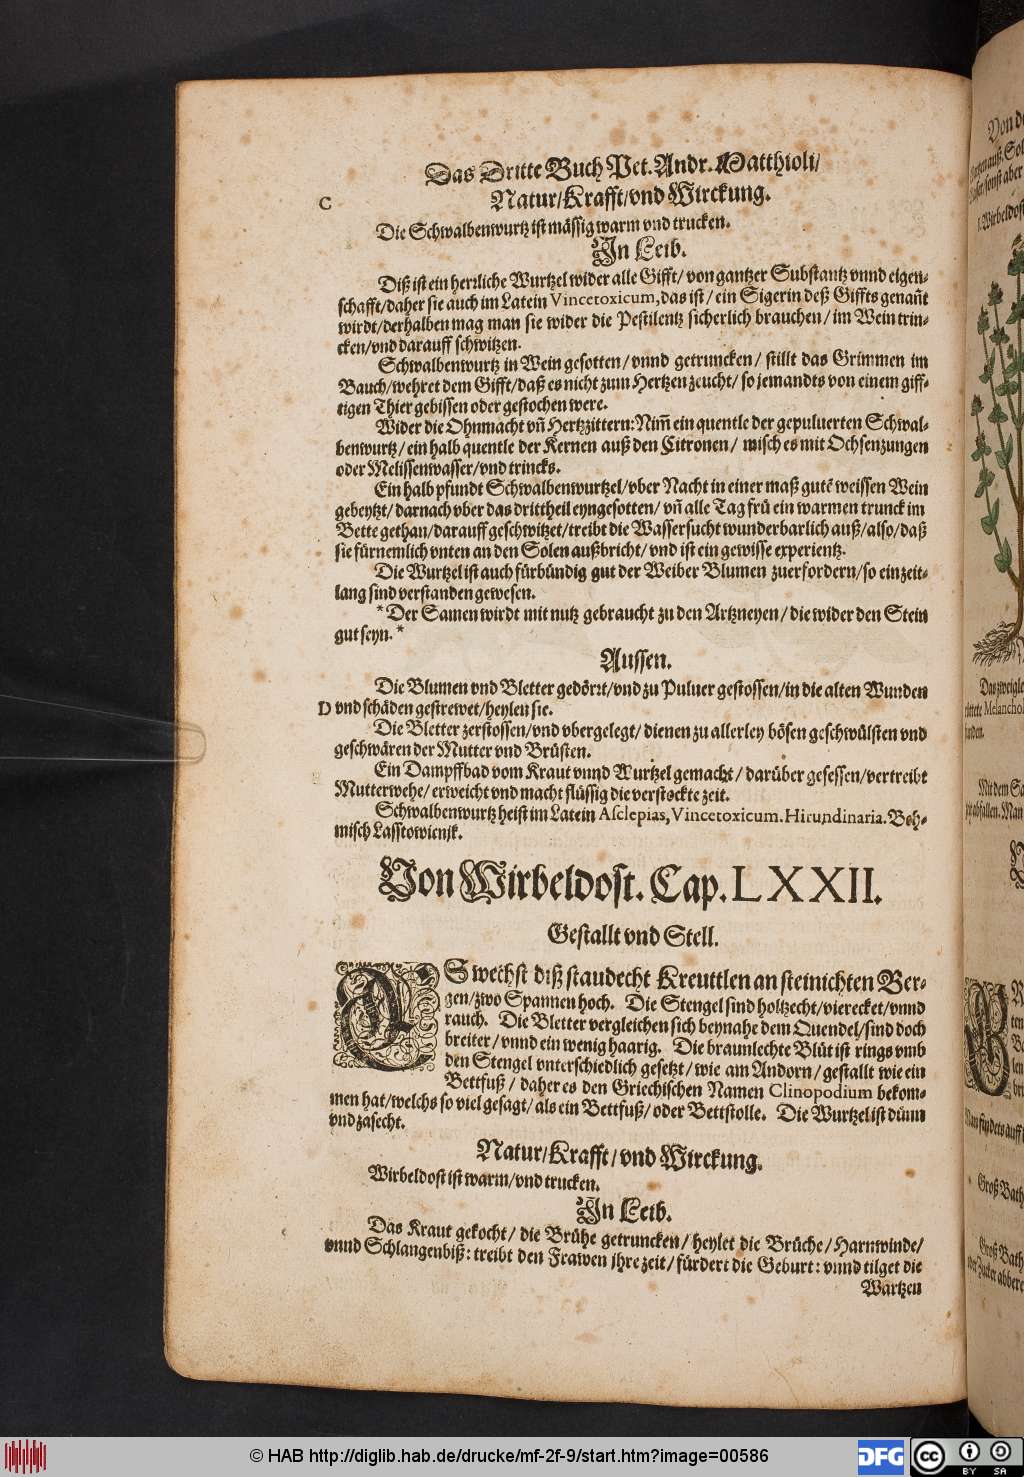 Das Dritte Buch Pet. Andr. Matthioli/
C
Natur/Krafft/vnd Wirckung.
Die Schwalbenwurtz ist mässig warm vnd trucken.
In Leib.
Diß ist ein herrliche Wurtzel wider alle Gifft/ von gantzer Substantz vnnd eigen-
schafft/daher sie auch im Latein Vincetoxicum, das ist/ ein Sigerin deß Giffts genañt
wirdt/derhalben mag man sie wider die Pestilentz sicherlich brauchen/ im Wein trin-
cken/vnd darauff schwitzen.
Schwalbenwurtz in Wein gesotten/ vnnd getruncken/ stillt das Grimmen im
Bauch/wehret dem Gifft/daß es nicht zum Hertzen zeucht/ so jemandts von einem giff-
tigen Thier gebissen oder gestochen were.
Wider die Ohnmacht vñ Hertzzittern: Nim̃ ein quentle der gepuluerten Schwal-
benwurtz/ ein halb quentle der Kernen auß den Citronen/ misch es mit Ochsenzungen
oder Melissenwasser/vnd trincks.
Ein halb pfundt Schwalbenwurtzel/vber Nacht in einer maß gutẽ weissen Wein
gebeytzt/ darnach vber das drittheil eyngesotten/ vñ alle Tag frü ein warmen trunck im
Bette gethan/darauff geschwitzet/treibt die Wassersucht wunderbarlich auß/also/daß
sie fürnemlich vnten an den Solen außbricht/ vnd ist ein gewisse experientz.
Die Wurtzel ist auch fürbündig gut der Weiber Blumen zuerfordern/so ein zeit-
lang sind verstanden gewesen.
* Der Samen wirdt mit nutz gebraucht zu den Artzneyen/ die wider den Stein
gut seyn. *
Aussen.
Die Blumen vnd Bletter gedörrt/vnd zu Puluer gestossen/in die alten Wunden
D vnd schäden gestrewet/heylen sie.
Die Bletter zerstossen/vnd vbergelegt/ dienen zu allerley bösen geschwülsten vnd
geschwären der Mutter vnd Brüsten.
Ein Dampffbad vom Kraut vnnd Wurtzel gemacht/ darüber gesessen/vertreibt
Mutterwehe/ erweicht vnd macht flüssig die verstockte zeit.
Schwalbenwurtz heist im Latein Asclepias, Vincetoxicum. Hirundinaria. Böh-
misch Lasstowicnjk.
Von Wirbeldost. Cap. LXXII.
Gestallt vnd Stell.
ES wechst diß staudecht Kreuttlen an steinichten Ber-
gen/zwo Spannen hoch. Die Stengel sind holtzecht/vierecket/vnnd
rauch. Die Bletter vergleichen sich beynahe dem Quendel/sind doch
breiter/ vnnd ein wenig haarig. Die braunlechte Blüt ist rings vmb
den Stengel vnterschiedlich gesetzt/ wie am Andorn/ gestallt wie ein
Bettfuß/ daher es den Griechischen Namen Clinopodium bekom-
men hat/welchs so viel gesagt/ als ein Bettfuß/ oder Bettstolle. Die Wurtzel ist dünn
vnd zasecht.
Natur/Krafft/vnd Wirckung.
Wirbeldost ist warm/vnd trucken.
In Leib.
Das Kraut gekocht/ die Brühe getruncken/ heylet die Brüche/ Harnwinde/
vnnd Schlangenbiß: treibt den Frawen ihre zeit/ fürdert die Geburt: vnnd tilget die
Wartzen
© HAB http://diglib.hab.de/drucke/mf-2f-9/start.htm?image=00586
DFG
cc
BY SA